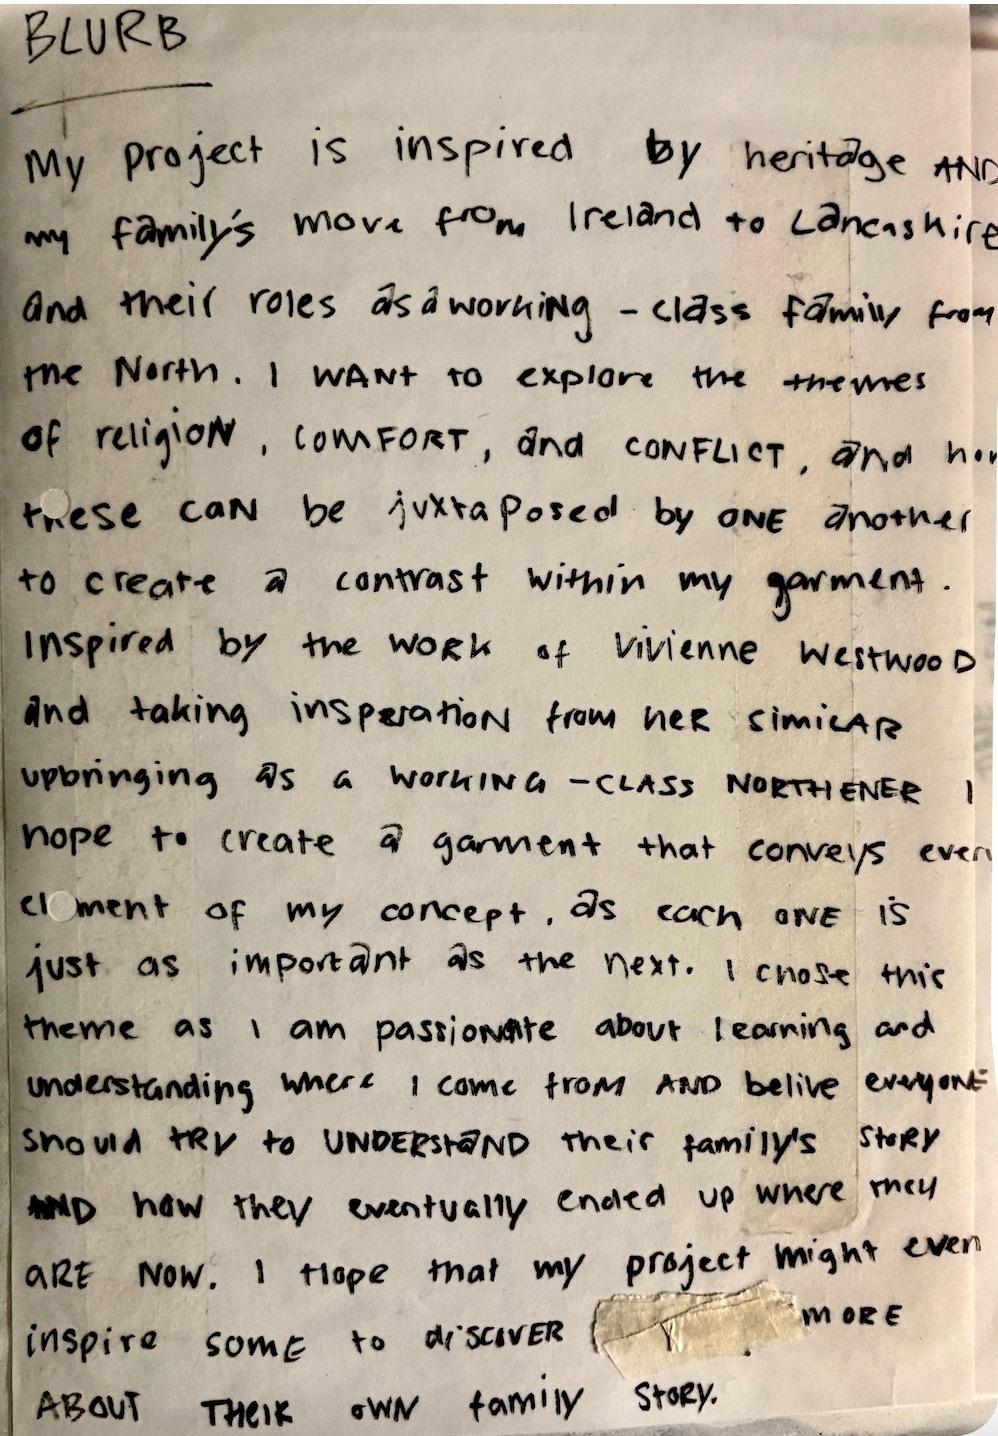 BLURB
My project is inspired by heritage AND
my family's move from Ireland to Lancashire
and their roles as a working - class family from
the North. I WANT to explore the themes
of religion, COMFORT, and CONFLICT, and how
these can be juxtaposed by ONE another
to create a contrast within my garment.
Inspired by the work of Vivienne Westwood
and taking insperation from her similar
upbringing as a working - CLASS NORTHENER I
hope to create a garment that conveys
element of my concept, as each ONE is
just as important as the next. I chose this
theme as I am passionate about learning and
understanding where I come from AND belive everyone
should TRY to UNDERSTAND their family's story
AND how they eventually ended up where they
ARE NOW. I Hope that my project might even
inspire some to discover MORE
ABOUT THEIR OWN family story.